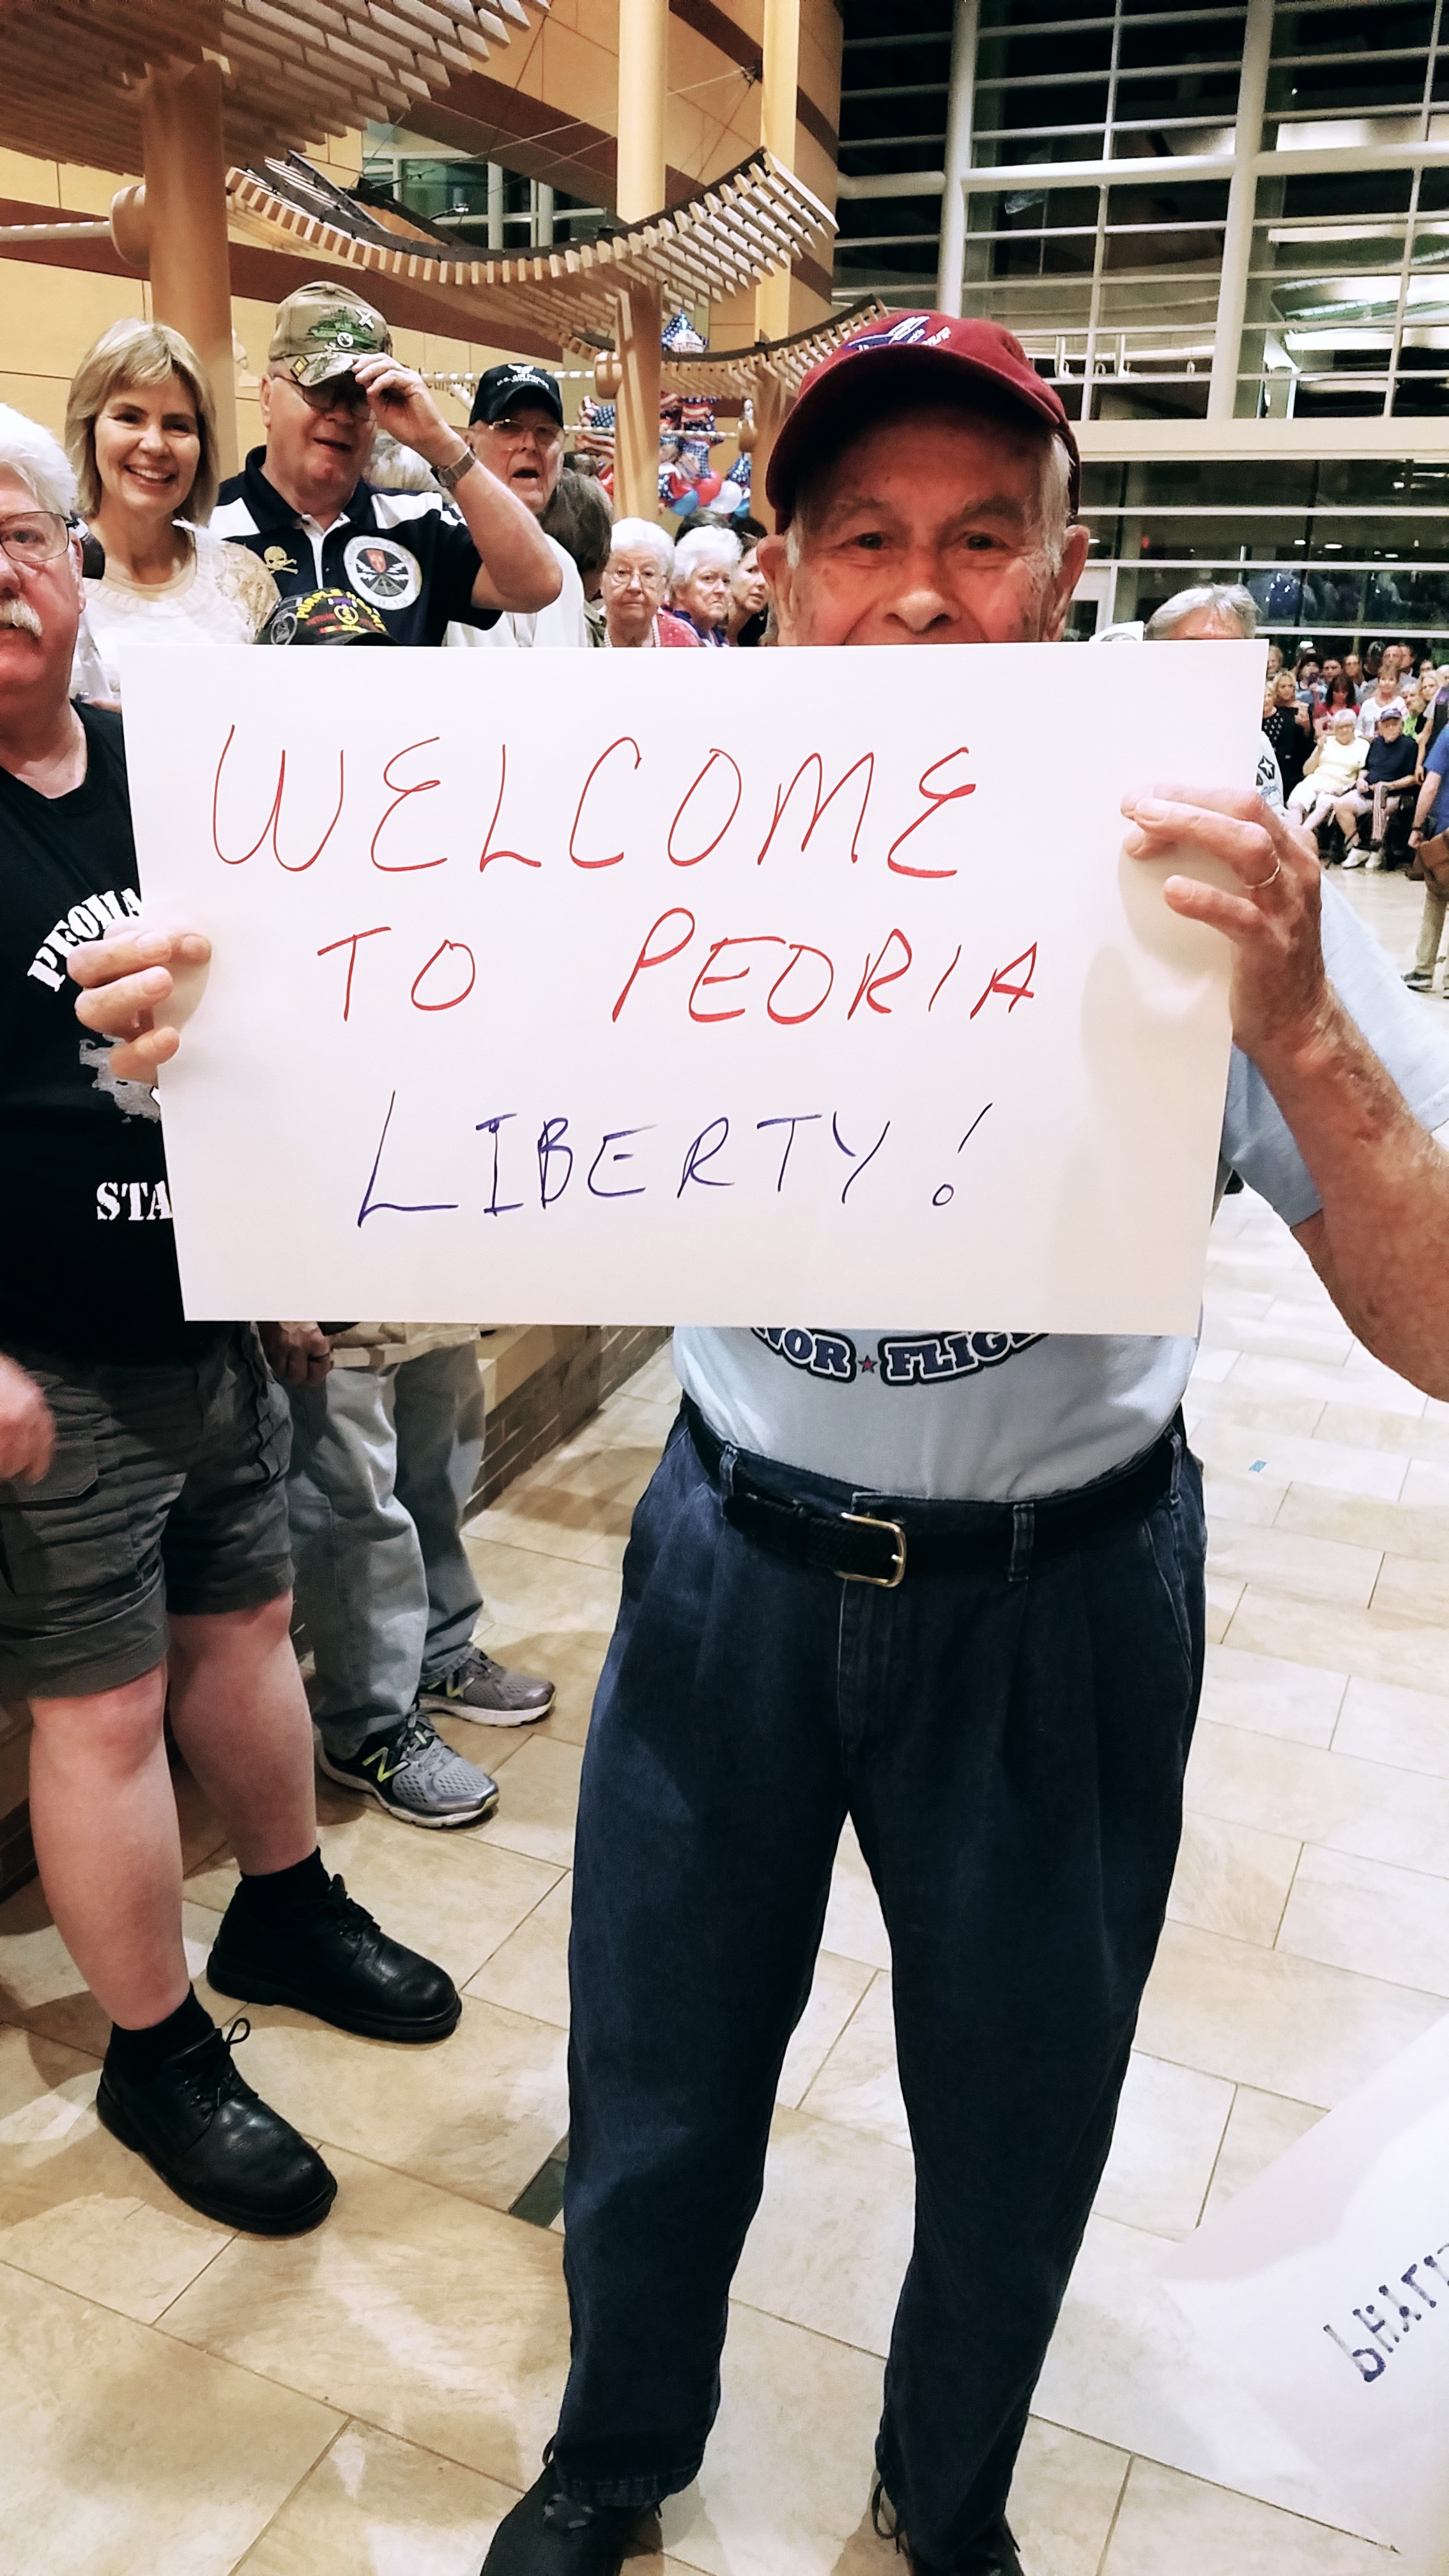 WELCOME
TO PEORIA
LIBERTY!
PEORIA
STA
NOR ★ FLIG
PURPLE